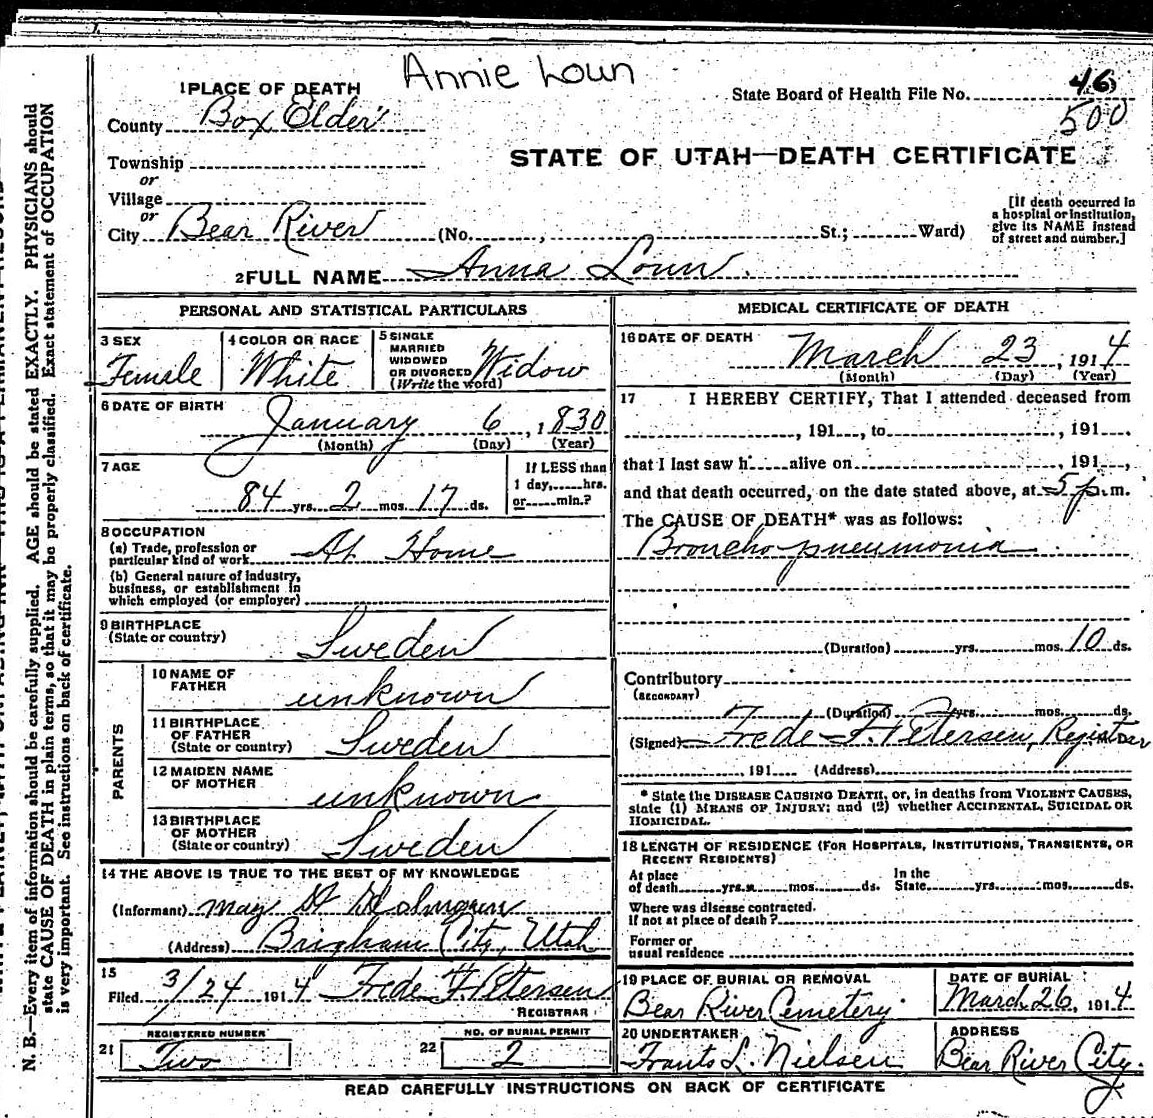 Annie Loun
1 PLACE OF DEATH
State Board of Health File No. 46
500
County Box Elder
STATE OF UTAH—DEATH CERTIFICATE
Township
or
Village
or
City Bear River (No. , St.; Ward)
[If death occurred in
a hospital or institution,
give its NAME instead
of street and number.]
2 FULL NAME Anna Loun.
PERSONAL AND STATISTICAL PARTICULARS
3 SEX
Female
4 COLOR OR RACE
White
5 SINGLE
MARRIED
WIDOWED
OR DIVORCED
(Write the word)
Widow
6 DATE OF BIRTH
January 6, 1830
(Month) (Day) (Year)
7 AGE
84 yrs. 2 mos. 17 ds.
If LESS than
1 day, hrs.
or min.?
8 OCCUPATION
(a) Trade, profession or
particular kind of work At Home
(b) General nature of industry,
business, or establishment in
which employed (or employer)
9 BIRTHPLACE
(State or country)
Sweden
PARENTS
10 NAME OF
FATHER
unknown
11 BIRTHPLACE
OF FATHER
(State or country)
Sweden
12 MAIDEN NAME
OF MOTHER
unknown
13 BIRTHPLACE
OF MOTHER
(State or country)
Sweden
14 THE ABOVE IS TRUE TO THE BEST OF MY KNOWLEDGE
(Informant) May
(Address) Brigham City, Utah
15
Filed 3/24 1914 Frede F. Petersen
REGISTRAR
REGISTERED NUMBER
21 Two
NO. OF BURIAL PERMIT
22 2
MEDICAL CERTIFICATE OF DEATH
16 DATE OF DEATH
March 23, 1914
(Month) (Day) (Year)
17 I HEREBY CERTIFY, That I attended deceased from
, 191 , to , 191 .
that I last saw h alive on , 191 ,
and that death occurred, on the date stated above, at 5 p.m.
The CAUSE OF DEATH* was as follows:
Broncho-pneumonia
(Duration) yrs. mos. 10 ds.
Contributory
(SECONDARY)
(Duration) yrs. mos. ds.
(Signed) Frede F. Petersen, Registrar
, 191 (Address)
* State the DISEASE CAUSING DEATH, or, in deaths from VIOLENT CAUSES,
state (1) MEANS OF INJURY; and (2) whether ACCIDENTAL, SUICIDAL OR
HOMICIDAL.
18 LENGTH OF RESIDENCE (FOR HOSPITALS, INSTITUTIONS, TRANSIENTS, OR
RECENT RESIDENTS)
At place
of death yrs. mos. ds.
In the
State yrs. mos. ds.
Where was disease contracted.
If not at place of death?
Former or
usual residence
19 PLACE OF BURIAL OR REMOVAL
Bear River Cemetery.
DATE OF BURIAL
March 26, 1914
20 UNDERTAKER
Frants L. Nielsen
ADDRESS
Bear River City.
READ CAREFULLY INSTRUCTIONS ON BACK OF CERTIFICATE
N. B.—Every item of information should be carefully supplied. AGE should be stated EXACTLY. PHYSICIANS should
state CAUSE OF DEATH in plain terms, so that it may be properly classified. Exact statement of OCCUPATION
is very important. See instructions on back of certificate.